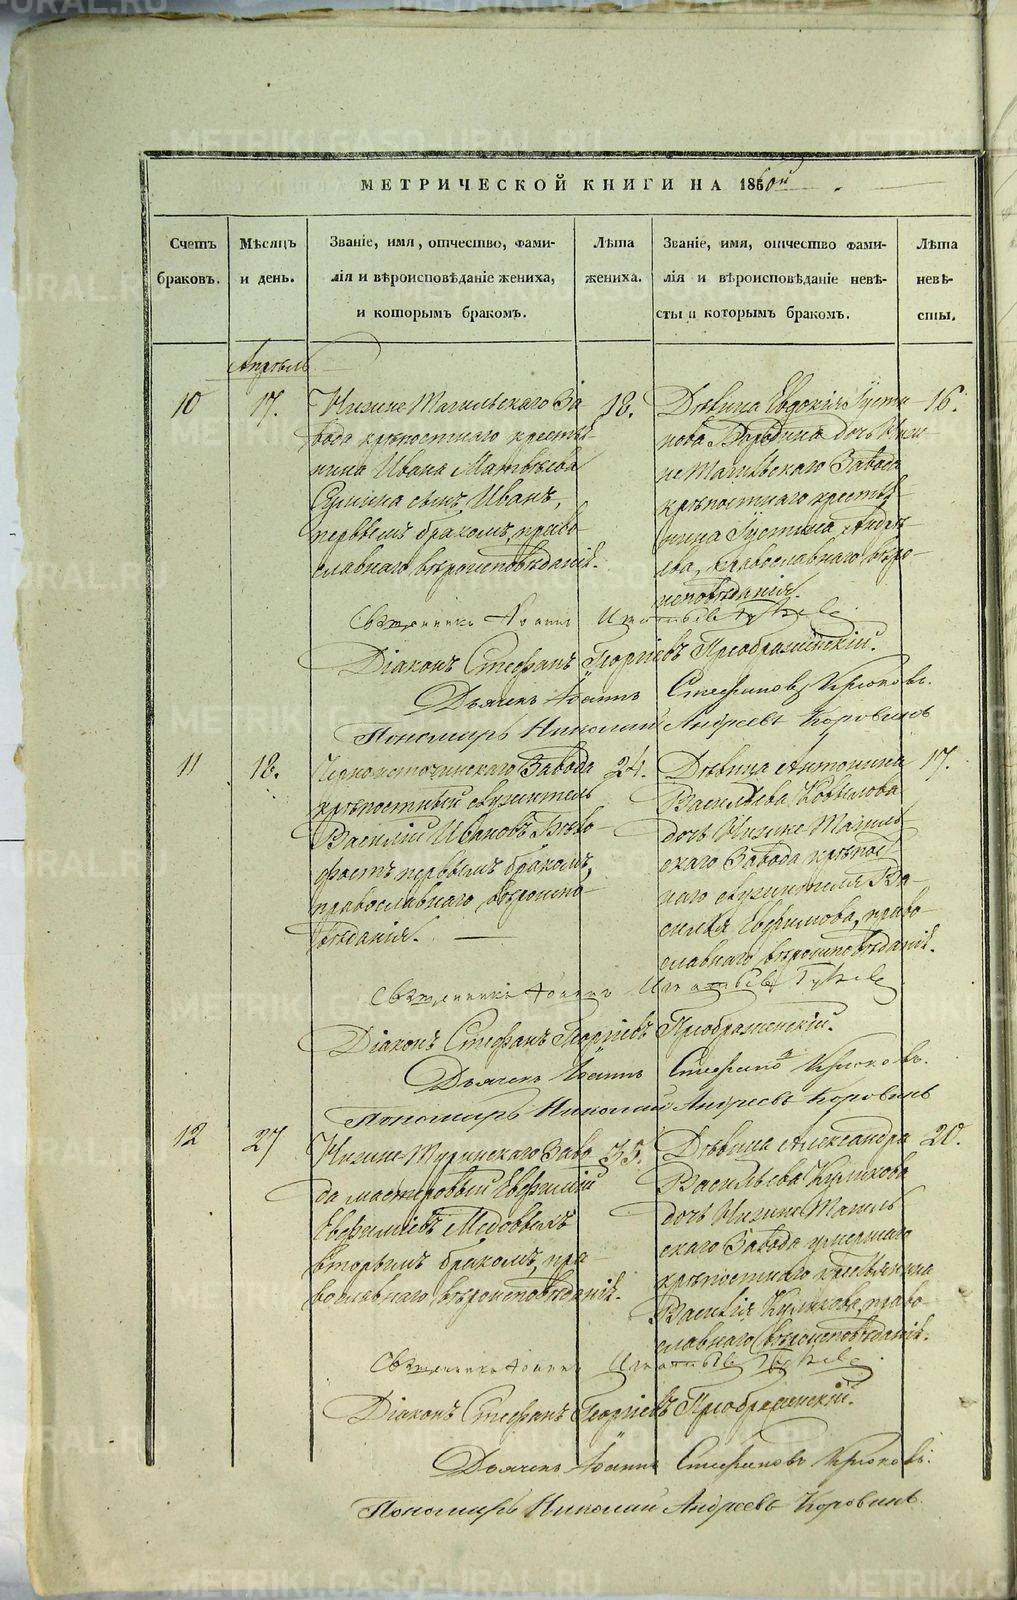 МЕТРИЧЕСКОЙ КНИГИ НА 1860й
Счетъ браковъ.
Мѣсяцъ и день.
Званіе, имя, отчество, фами-
лія и вѣроисповѣданіе жениха,
и которымъ бракомъ.
Лѣта жениха.
Званіе, имя, отчество фами-
лія и вѣроисповѣданіе невѣ-
сты и которымъ бракомъ.
Лѣта невѣ-
сты.
Апрѣль
10
17.
Нижне Тагильскаго За
вода крѣпостнаго кресть
нина Ивана Матвѣева
сынъ Иванъ,
первымъ бракомъ, право
славнаго вѣроисповѣданія.
18.
Дѣвица Евдокія Густи
нова Бородина дочь Ниж
не Тагильскаго Завода
крѣпостнаго кресть
нина Густина Андрѣ
ева, православнаго вѣро
исповѣданія.
16.
Священникъ Іоаннъ Игнатьевъ
Діаконъ Стефанъ Георгіевъ Преображенскій.
Дьячекъ Іоаннъ Стефановъ Крюковъ.
Пономарь Николай Андреевъ Коровинъ
11
18.
Черноисточинскаго Завода
крѣпостный служитель
Василій Ивановъ Бѣло
первымъ бракомъ,
православнаго вѣроиспо
вѣданія.
24.
Дѣвица Антонина
Васильева Ковылова
дочь Нижне Тагиль
скаго Завода крѣпос
наго служителя Ва
силія Евфимова, право
славнаго вѣроисповѣданія.
17.
Священникъ Іоаннъ Игнатьевъ
Діаконъ Стефанъ Георгіевъ Преображенскій.
Дьячекъ Іоаннъ Стефановъ Крюковъ.
Пономарь Николай Андреевъ Коровинъ
12
27
Нижне Туринскаго Заво
да мастеровый Евфимій
Евфиміевъ Медовыхъ
вторымъ бракомъ, пра
вославнаго вѣроисповѣданія.
35.
Дѣвица Александра
Васильева Куликова
дочь Нижне Тагиль
скаго Завода умершаго
крѣпостнаго крестьянина
Василія Куликова, право
славнаго вѣроисповѣданія.
20.
Священникъ Іоаннъ Игнатьевъ
Діаконъ Стефанъ Георгіевъ Преображенскій.
Дьячекъ Іоаннъ Стефановъ Крюковъ.
Пономарь Николай Андреевъ Коровинъ.
METRIKI.GASO-URAL.RU